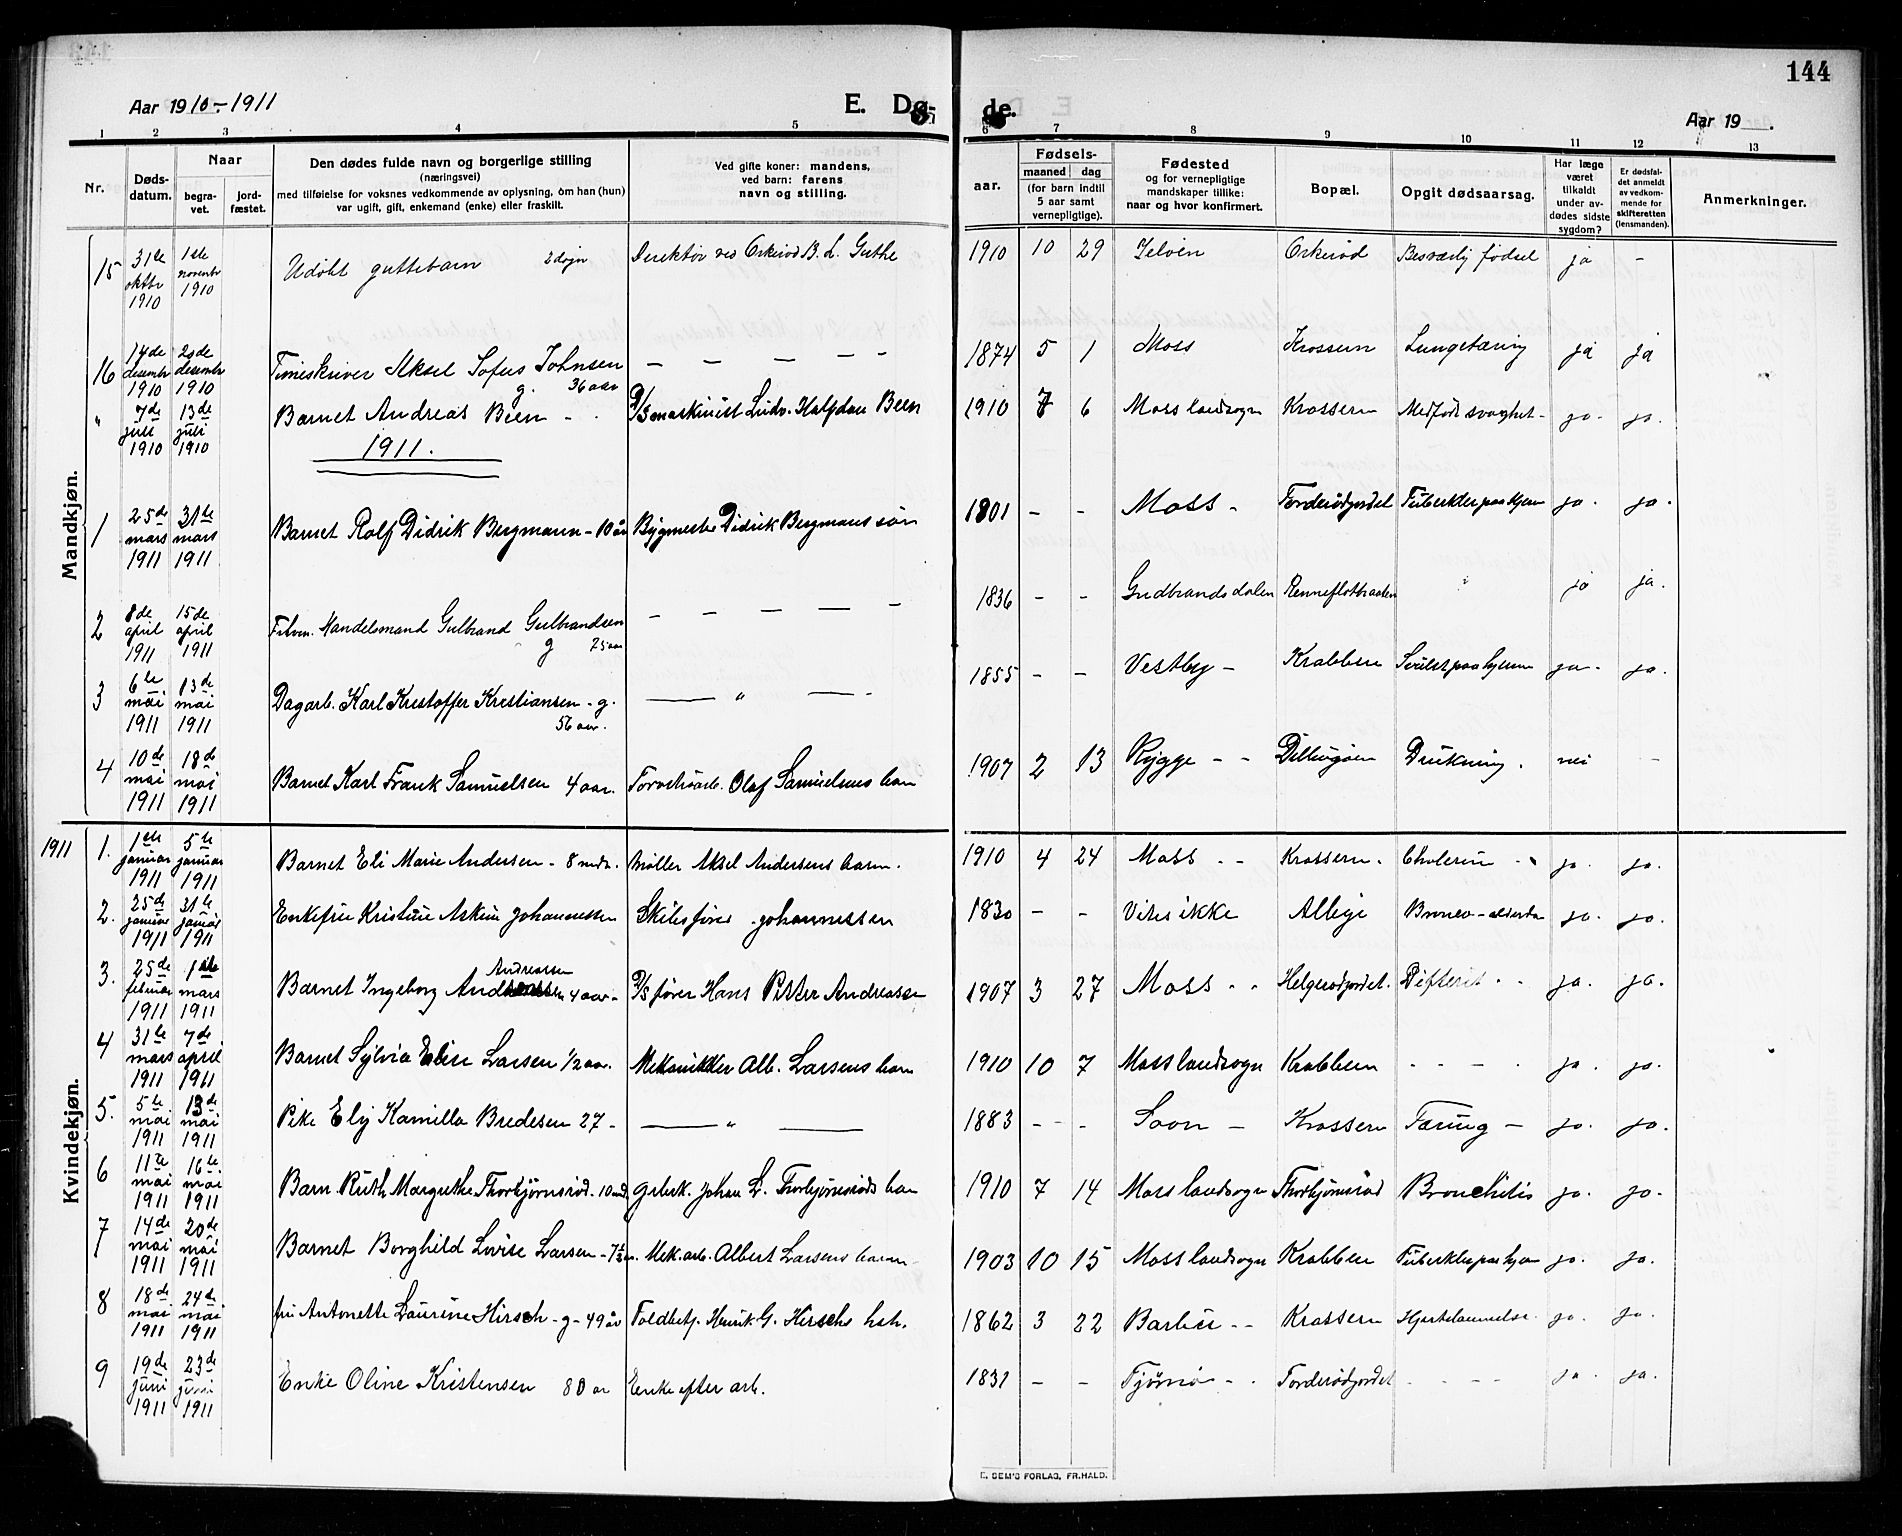 144
Aar 1910-1911
E. Dø-
de.
Aar 19 .
1 2 3 4 5 6 7 8 9 10 11 12 13
Nr.
Døds-
datum.
Naar
begra-
vet.
jord-
fæstet.
Den dødes fulde navn og borgerlige stilling
(næringsvei)
med tilføielse for voksnes vedkommende av oplysning, om han (hun)
var ugift, gift, enkemand (enke) eller fraskilt.
Ved gifte koner: mandens,
ved barn: farens
navn og stilling.
aar.
Fødsels-
maaned dag
(for barn indtil
5 aar samt
vernepligtige).
Fødested
og for vernepligtige
mandskaper tillike:
naar og hvor konfirmert.
Bopæl.
Opgit dødsaarsag.
Har læge
været
tilkaldt
under av-
dødes sidste
sygdom?
Er dødsfal-
det anmeldt
av vedkom-
mende for
skifteretten
(lensmanden).
Anmerkninger.
Mandkjøn.
15 31te oktbr 1910 1ste novembr 1910 Udøbt guttebarn 2 døgn Direktør ved Orkerød B. L. Guthe 1910 10 29 Jeløen Orkerød Besværlig fødsel ja -
16 14de desembr 1910 20de desembr 1910 Timeskriver Aksel Sofus Johnsen g. 36 aar - - - - - 1874 5 1 Moss Krossern Lungetæring ja ja
" 7de juli 1910 13de juli 1910 Barnet Andreas Been - D/S maskinist Ludv. Halfdan Been 1910 7 6 Moss landsogn Krossern Medfødt svaghet - ja. ja.
1911.
1 25de mars 1911 31te mars 1911 Barnet Rolf Didrik Bergmann - 10 år Bygmester Didrik Bergmans søn 1801 - - Moss - Forderødjordet Tuberkler paa hjern ja. ja.
2 8de april 1911 15de april 1911 Handelsmand Gulbrand Gulbrandsen g 75 aar - - - - - 1836 - - Gudbrandsdalen Renneflotbraaten " ja ja.
3 6te mai 1911 13de mai 1911 Dagarb. Karl Kristoffer Kristiansen - g. 56 aar. - " - 1855 - - Vestby - Krabbern Svulst paa hjernen ja - ja.
4 10de mai 1911 18de mai 1911 Barnet Karl Frank Samuelsen 4 aar. Torvstrøarb. Olaf Samuelsens barn 1907 2 13 Rygge - - Dillingøen Drukning. nei -
Kvindekjøn.
1911 1. 1ste januar 1911 5te januar 1911 Barnet Eli Marie Andersen - 8 mdr. Møller Aksel Andersens barn. 1910 4 24 Moss - - Krossern. Cholerin - ja. ja.
2. 25de januar 1911 31te januar 1911 Enkefru Kristine Johannessen Skibsfører Johannessen 1830 - - Vites ikke Alleje ja. ja.
3. 25de februar 1911 1ste mars 1911 Barnet Ingeborg Andreassen 4 aar - D/S fører Hans Petter Andreassen 1907 3 27 Moss - - Helgerødjordet. Difterit - - ja. ja.
4 31te mars 1911 7de april 1911 Barnet Sylvia Elise Larsen 1/2 aar. Mekanikker Alb. Larsens barn 1910 10 7 Moss landsogn Krabbern - - - - ja. ja.
5. 5te mai 1911 13de mai 1911 Pike Ely Kamilla Bredesen 27 - - " - 1883 - - - Soon - Krossern Tæring - ja. ja.
6 11te mai 1911 16te mai 1911 Barn Ruth Margrethe Thorbjørnsrød - 10 md. Johan L. Thorbjørnsrøds barn 1910 7 14 Moss landsogn Thorbjørnsrød Bronchitis ja. ja.
7 14de mai 1911 20de mai 1911 Barnet Borghild Lovise Larsen - 7½ Mek.arb. Albert Larsens barn 1903 10 15 Moss landsogn Krabbern Tuberkler paa hjern ja. ja.
8 18de mai 1911 24de mai 1911 fru Antonette Laurine Hirsch - g - 49 år Toldbetj. Henrik G. Hirschs hstr. 1862 3 22 Barbu - - Krossern Hjertelammelse. ja. ja.
9 19de juni 1911 23de juni 1911 Enke Oline Kristensen 80 år Enke efter arb. 1831 - - Tjømø - - Forderødjordet - - - - ja. ja.
E. SEM'S FORLAG, FR.HALD.